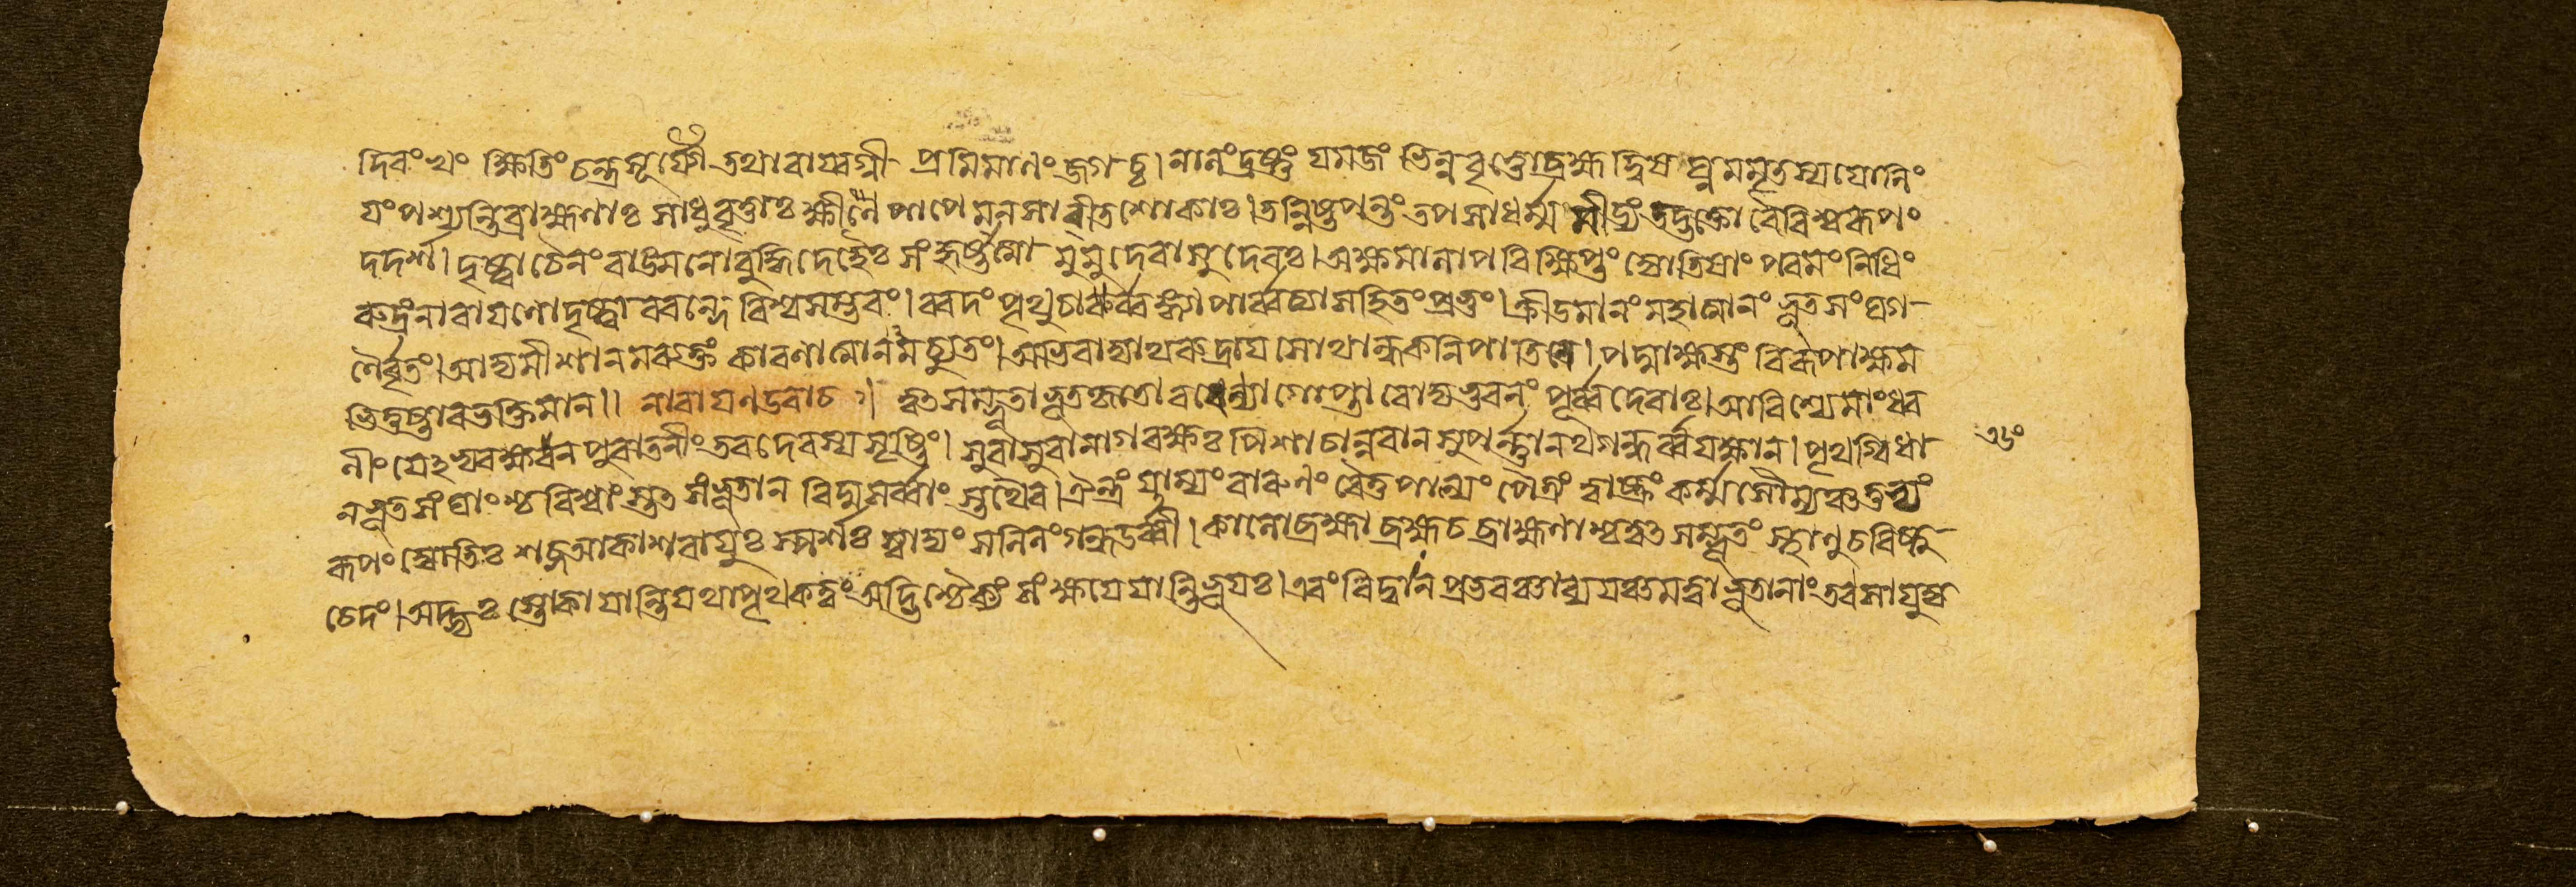 দিবং খং ক্ষিতিং চন্দ্রসূর্য্যৌ তথা বায়্বগ্নী প্রমিমাণং জগচ্চ। নালং দ্রষ্টুং যমজং ভিন্নবৃত্তা ব্রহ্মদ্বিষঘ্নমমৃতস্য যোনিং
যং পশ্যন্তি ব্রাহ্মণাঃ সাধুবৃত্তাঃ ক্ষীণে পাপে মনসা বীতশোকাঃ। তন্নিষ্ঠপন্তং তপসা ধর্ম্মমীড্যং তদ্ভক্ত্যা বৈ বিশ্বরূপং
দদর্শ। দৃষ্ট্বা চৈনং বাঙ্মনোবুদ্ধিদেহৈঃ সংহৃষ্টাত্মা মুমুদে বাসুদেবঃ। অক্ষমালাপরিক্ষিপ্তং জ্যোতিষাং পরমং নিধিং
রুদ্রং নারায়ণো দৃষ্ট্বা ববন্দে বিশ্বসম্ভবং। বরদং পৃথুচার্ব্বঙ্গ্যা পার্ব্বত্যা সহিতং প্রভুং। ক্রীডমানং মহাত্মানং ভূতসংঘগ
ণৈর্বৃতং। অজমীশানমব্যক্তং কারণাত্মানমচ্যুতং। অভিবাদ্যাথ রুদ্রায় সোথান্ধকনিপাতিনে। পদ্মাক্ষস্তং বিরূপাক্ষম
ভিতুষ্টাব ভক্তিমান॥ নারায়ণ উবাচ॥ ত্বৎসম্ভূতা ভূতকৃতো বরেণ্য গোপ্তারোদ্য ভুবনং পূর্ব্বদেবাঃ। আবিশ্যেমাং ধর
ণীং যেঽভ্যরক্ষন পুরাতনীং তব দেবস্য সৃষ্টিং। সুরাসুরানাগরক্ষঃপিশাচান্নরান সুপর্ন্নানথ গন্ধর্ব্বযক্ষান। পৃথগ্বিধা
ন ভূতসংঘাংশ্চ বিশ্বাংস্ত্বৎসংভূতান বিদ্ম সর্ব্বাংস্তথৈব। ঐন্দ্রং যাম্যং বারুণং বৈত্তপাল্যং মৈত্রং ত্বাষ্ট্রং কর্ম্ম সৌম্যঞ্চ তুভ্যং
রূপং জ্যোতিঃ শব্দ আকাশবায়ুঃ স্পর্শঃ স্বাদ্যং সলিলং গন্ধ উর্ব্বী। কালো ব্রহ্মা ব্রহ্ম চ ব্রাহ্মণাশ্চ ত্বৎসম্ভূতং স্থাণু চরিষ্ণু
চেদং। অদ্ভ্যঃ স্তোকা যান্তি যথা পৃথকত্বং তাভিশ্চৈক্যং সংক্ষয়ে যান্তি ভূয়ঃ। এবং বিদ্বান প্রভবঞ্চাব্যয়ঞ্চ মত্বা ভূতানাং তব সাযুজ্য